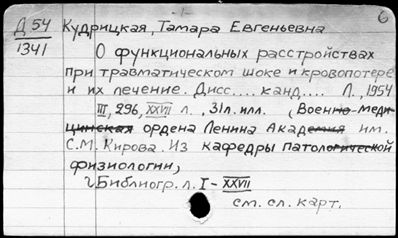 -1-
6
Д 54
1341
Кудрицкая, Тамара Евгеньевна
О функциональных расстройствах
при травматическом шоке и кровопотере
и их лечение. Дисс.... канд.... Л., 1954
III, 296, XXVII л., 31л. илл. (Военно-меди-
цинская ордена Ленина Академия им.
С.М. Кирова. Из кафедры патологической
физиологии)
Библиогр. л. I - XXVII
см. сл. карт.